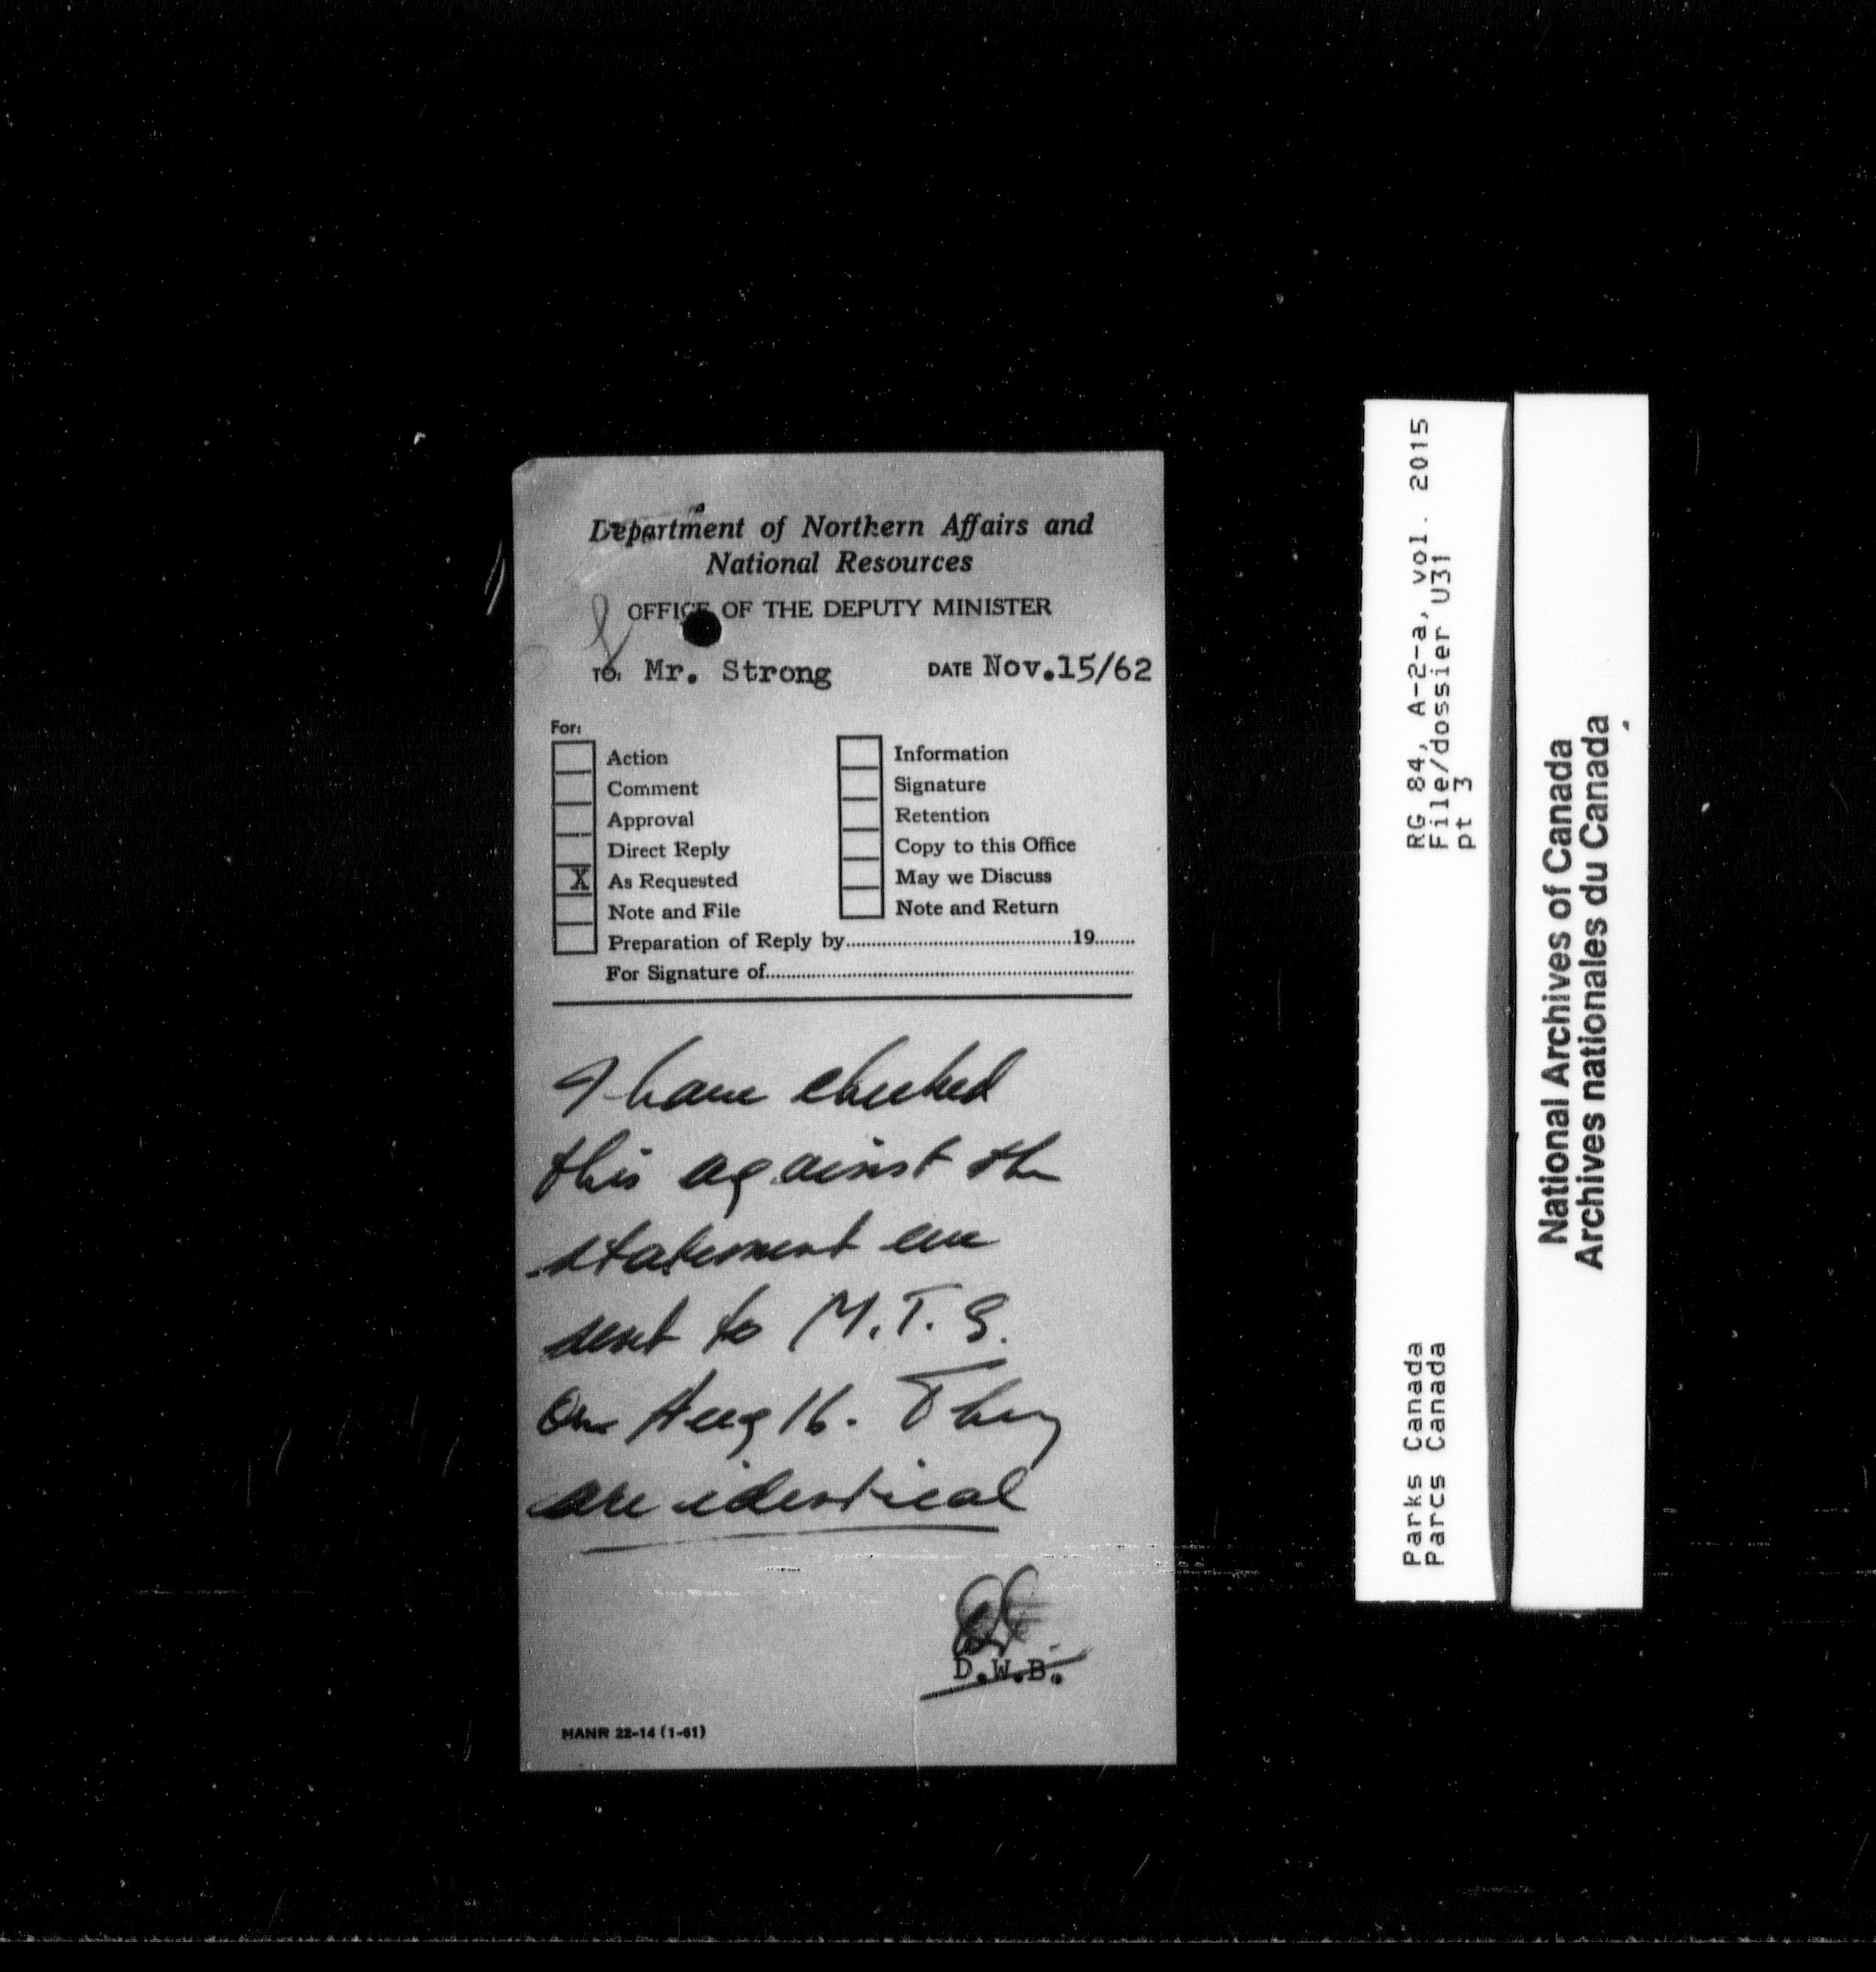 Department of Northern Affairs and
National Resources
OFFICE OF THE DEPUTY MINISTER
TO: Mr. Strong DATE Nov.15/62
For:
Action
Comment
Approval
Direct Reply
X As Requested
Note and File
Preparation of Reply by 19
For Signature of
Information
Signature
Retention
Copy to this Office
May we Discuss
Note and Return
I have checked
this against the
statement we
sent to M.T.S.
on Aug 16. They
are identical
D.W.B.
NANR 22-14 (1-61)
RG 84, A-2-a, vol. 2015
File/dossier U31
pt 3
Parks Canada
Parcs Canada
National Archives of Canada
Archives nationales du Canada